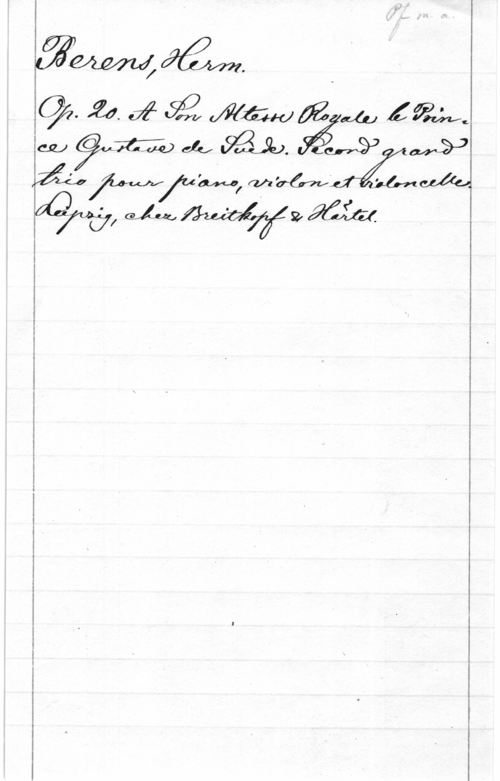 Pf m. a.
Berens, Herm.
Op. 20. A Son Altesse Royale le Prin-
ce Gustave de Suède. Second grand
trio pour piano, violon et violoncelle.
Leipzig, chez Breitkopf & Härtel.